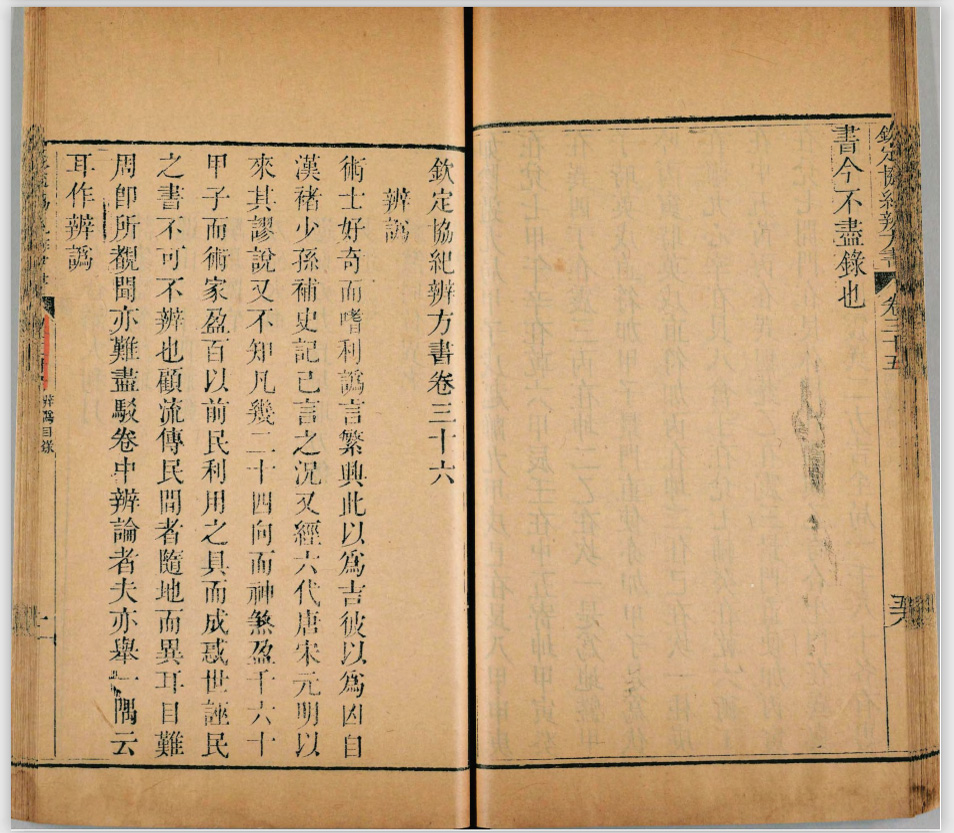 欽定協紀辨方書 卷三十五
書今不盡錄也
欽定協紀辨方書卷三十六
辨譌
術士好奇而嗜利譌言繁興此以爲吉彼以爲凶自
漢褚少孫補史記已言之況又經六代唐宋元明以
來其謬說又不知凡幾二十四向而神煞盈千六十
甲子而術家盈百以前民利用之具而成惑世誣民
之書不可不辨也顧流傳民間者隨地而異耳目難
周卽所覩聞亦難盡駁卷中辨論者夫亦舉一隅云
耳作辨譌
辨譌目錄